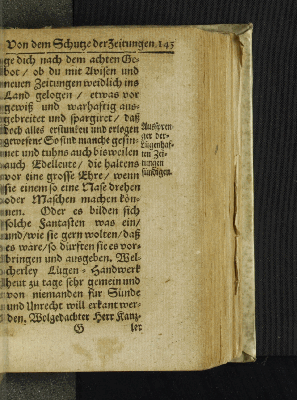 Von dem Schutze der Zeitungen. 143
ge dich nach dem achten Ge-
bot / ob du mit Avisen und
neuen Zeitungen weidlich ins
Land gelogen / etwas vor
gewiß und warhaftig aus-
gebreitet und spargiret / daß
doch alles erstunken und erlogen
gewesen? So sind manche gesin-
net und tuhns auch bisweilen
auch Edelleute / die haltens
vor eine grosse Ehre / wenn
sie einem so eine Nase drehen
oder Maschen machen kön-
nen. Oder es bilden sich
solche Fantasten was ein /
und / wie sie gern wolten / daß
es wäre / so dürften sie es vor-
bringen und ausgeben. Wel-
cherley Lügen-Handwerk
heut zu tage sehr gemein und
von niemanden für Sünde
und Unrecht will erkant wer-
den. Wolgedachter Herr Kanz-
G ler
Ausspren-
ger der
Lügenhaf-
ten Zei-
tungen
sündigen.